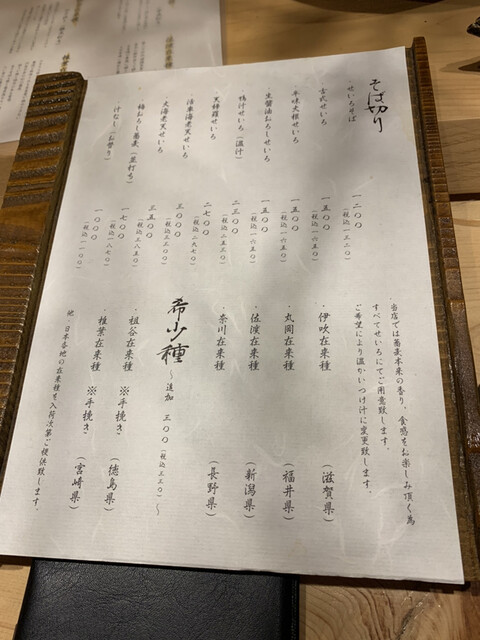 そば切り
・せいろそば 一二〇〇（税込一三二〇）
・古式せいろ 一五〇〇（税込一六五〇）
・辛味大根せいろ 一五〇〇（税込一六五〇）
・生醤油おろしせいろ 一五〇〇（税込一六五〇）
・鴨汁せいろ（温汁） 二三〇〇（税込二五三〇）
・天婦羅せいろ 二七〇〇（税込二九七〇）
・活車海老天せいろ 三〇〇〇（税込三三〇〇）
・大海老天せいろ 三五〇〇（税込三八五〇）
・梅おろし蕎麦（並打ち） 一七〇〇（税込一八七〇）
汁なし（お替り） 一〇〇〇（税込一一〇〇）
・当店では蕎麦本来の香り、食感をお楽しみ頂く為
すべてせいろにてご用意致します。
ご希望により温かいつけ汁に変更致します。
・伊吹在来種（滋賀県）
・丸岡在来種（福井県）
・佐渡在来種（新潟県）
・奈川在来種（長野県）
希少種 〜追加 三〇〇（税込三三〇）〜
・祖谷在来種 ※手挽き（徳島県）
・椎葉在来種 ※手挽き（宮崎県）
他、日本各地の在来種を入荷次第ご提供致します。